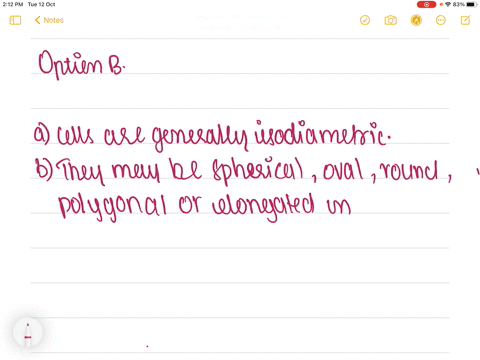 2:12 PM Tue 12 Oct
83%
Notes
Option B.
a) cells are generally isodiametric.
b) They may be spherical, oval, round,
polygonal or elongated in